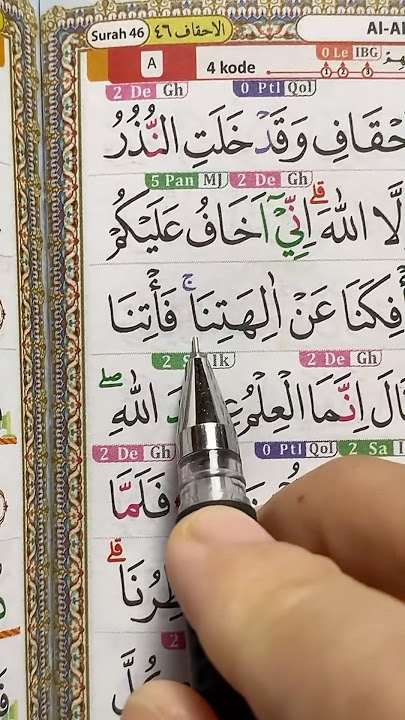 Surah 46 الاحقاف ٤٦
A 4 kode 0 Le IBG
2 De Gh 0 Ptl Qol
حْقَافِ وَقَدْ خَلَتِ النُّذُرُ
5 Pan MJ 2 De Gh
لَّا اللّٰهَ ۗ اِنِّيْٓ اَخَافُ عَلَيْكُمْ
أْفِكَنَا عَنْ اٰلِهَتِنَا ۚ فَأْتِنَا
2 De Gh
قَالَ اِنَّمَا الْعِلْمُ اللّٰهِ ۖ
2 De Gh 0 Ptl Qol 2 Sa
فَلَمَّا
2